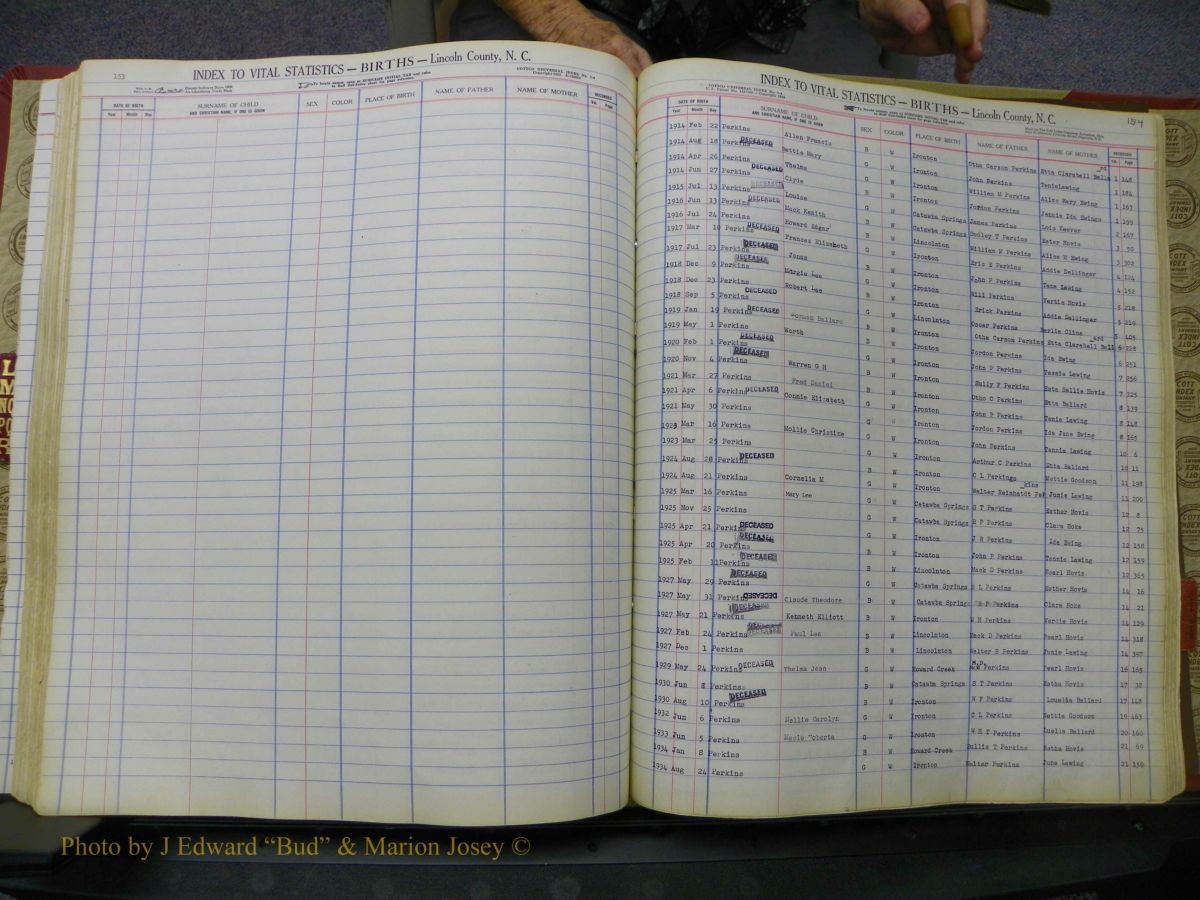 153
INDEX TO VITAL STATISTICS — BIRTHS — Lincoln County, N. C.
DATE OF BIRTH
Year Month Day
SURNAME OF CHILD
AND CHRISTIAN NAME, IF ONE IS GIVEN
SEX
COLOR
PLACE OF BIRTH
NAME OF FATHER
NAME OF MOTHER
RECORDED
Vol. Page
INDEX TO VITAL STATISTICS — BIRTHS — Lincoln County, N. C.
154
DATE OF BIRTH
Year Month Day
SURNAME OF CHILD
AND CHRISTIAN NAME, IF ONE IS GIVEN
SEX
COLOR
PLACE OF BIRTH
NAME OF FATHER
NAME OF MOTHER
RECORDED
Vol. Page
1914 Feb 22 Perkins Allen Francis B W Ironton Otha Carson Perkins Etta Clarabell Balla rd 1 148
1914 Aug 18 Perkins DECEASED Bettie Mary G W Ironton John Perkins 1 184
1914 Apr 26 Perkins Thelma G W Ironton William M Perkins Alice Mary Ewing 1 167
1914 Jun 27 Perkins DECEASED Clyde B W Ironton Jordon Perkins Jennie Ida Ewings 1 199
1915 Jul 13 Perkins DECEASED Louise G W Catawba Springs James Perkins Lois Keever 2 167
1916 Jun 13 Perkins DECEASED Mack Kenith B W Catawba Springs Dudley T Perkins Ester Hovis 3 50
1916 Jul 24 Perkins Howard Edgar B W Lincolnton William W Perkins Alice M Ewing 3 302
1917 Mar 10 Perkins DECEASED Frances Elizabeth G W Ironton Eric E Perkins Addie Dellinger 4 124
1917 Jul 23 Perkins DECEASED Jonas B W Ironton John P Perkins Tane Lewing 4 152
1918 Dec 9 Perkins DECEASED Margie Lee G W Ironton Will Perkins Vertie Hovis 5 218
1918 Dec 23 Perkins Robert Lee B W Ironton Erick Perkins Addie Dellinger 5 219
1918 Sep 5 Perkins DECEASED G W Lincolnton Oscar Perkins Berlie Cline 5 405
1919 Jan 19 Perkins DECEASED Ballard B W Ironton Otha Carson Perkins Etta Clarabell Ball ard 6 228
1919 May 1 Perkins Worth B W Ironton Jordon Perkins Ida Ewing 6 251
1920 Feb 1 Perkins DECEASED G W Ironton John P Perkins Tessie Lewing 7 256
1920 Nov 4 Perkins DECEASED Warren G H B W Ironton Sully F Perkins Esta Sallie Hovis 7 325
1921 Mar 27 Perkins Fred Daniel B W Ironton Otho C Perkins Etta Ballard 8 139
1921 Apr 6 Perkins DECEASED Connie Elizabeth G W Ironton John P Perkins Tenie Lawing 8 148
1921 May 30 Perkins G Ironton Jordon Perkins Ida Jane Ewing 8 165
1923 Mar 16 Perkins Mollie Christine G W Ironton John Perkins Tennie Lawing 10 6
1923 Mar 25 Perkins G W Ironton Arthur C Perkins Etta Ballard 10 11
1924 Aug 28 Perkins DECEASED B W Ironton C L Perkings Nettie Goodson 11 198
1924 Aug 21 Perkins Cornelia M G W Ironton Walter Reinhaldt Per kins Junie Lawing 11 200
1925 Mar 16 Perkins Mary Lee G W Catawba Springs S T Perkins Esther Hovis 12 8
1925 Nov 25 Perkins G W Catawba Springs R P Perkins Clara Hoke 12 75
1925 Apr 21 Perkins DECEASED G W Ironton J R Perkins Ida Ewing 12 158
1925 Apr 20 Perkins DECEASED B W Ironton John P Perkins Tennie Lawing 12 159
1925 Feb 11 Perkins DECEASED B W Lincolnton Mack D Perkins Pearl Hovis 12 365
1927 May 29 Perkins DECEASED G W Catawba Springs S L Perkins Esther Hovis 14 16
1927 May 31 Perkins DECEASED Claude Theodore B W Catawba Springs R P Perkins Clara Hoke 14 21
1927 May 21 Perkins DECEASED Kenneth Elliott B W Ironton W H Perkins Verdie Hovis 14 129
1927 Feb 24 Perkins DECEASED Paul Lee B W Lincolnton Mack D Perkins Pearl Hovis 14 318
1927 Dec 1 Perkins B W Lincolnton Walter R Perkins Junie Lawing 14 397
1929 May 24 Perkins DECEASED Thelma Jean G W Howard Creek M.D. Perkins Pearl Hovis 16 165
1930 Jun 8 Perkins B W Catawba Springs S T Perkins Estha Hovis 17 32
1930 Aug 10 Perkins DECEASED B W Ironton W F Perkins Louella Ballard 17 148
1932 Jun 6 Perkins Nellie Carolyn G W Ironton C L Perkins Nettie Goodson 19 463
1933 Jun 5 Perkins G W Ironton W H T Perkins Luella Ballard 20 160
1934 Jan 8 Perkins B W Howard Creek Sullie T Perkins Estha Hovis 21 69
1934 Aug 24 Perkins G W Ironton Walter Perkins June Lawing 21 159
COTT INDEX
Photo by J Edward “Bud” & Marion Josey ©